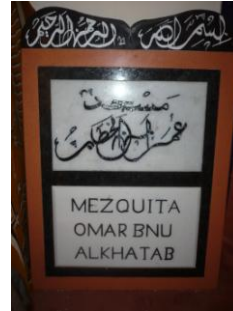 بسم الله الرحمن الرحيم
مسجد
عمر بن الخطاب
MEZQUITA
OMAR BNU
ALKHATAB